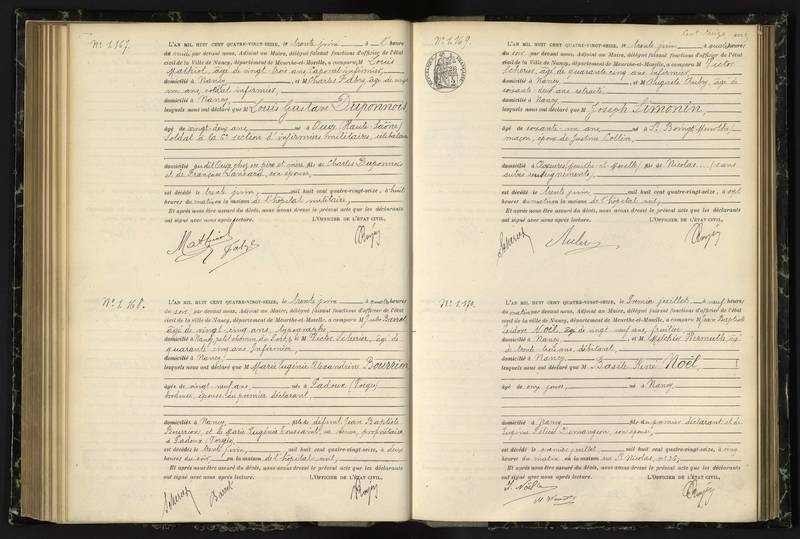 N° 1.167.
L'AN MIL HUIT CENT QUATRE-VINGT-SEIZE, le trente juin à l' heure
de midi par devant nous, Adjoint au Maire, délégué faisant fonctions d'officier de l'état
civil de la ville de Nancy, département de Meurthe-et-Moselle, a comparu M Louis
Mathiot, âgé de vingt trois ans, caporal infirmier,
domicilié à Nancy, et M Charles Fabry, âgé de vingt
un ans, soldat infirmier,
domicilié à Nancy
lesquels nous ont déclaré que M Louis Gustave Duponnois
âgé de vingt-deux ans né à Ouge (Haute Saône)
Soldat à la 6e section d'infirmiers militaires, célibataire
domicilié au dit Ouge chez ses père et mère fils de Charles Duponnois
et de Françoise, son épouse,
est décédé le trente juin, mil huit cent quatre-vingt-seize, à huit
heures du matin en la maison de l'hôpital militaire,
Et après nous être assuré du décès, nous avons dressé le présent acte que les déclarants
ont signé avec nous après lecture. L'OFFICIER DE L'ÉTAT CIVIL,
Mathiot
N° 1.168.
L'AN MIL HUIT CENT QUATRE-VINGT-SEIZE, le trente juin à quatre heures
du soir, par devant nous, Adjoint au Maire, délégué faisant fonctions d'officier de l'état
civil de la ville de Nancy, département de Meurthe-et-Moselle, a comparu M Jules
âgé de vingt-cinq ans, typographe
domicilié à Nancy, et M Victor Scherer, âgé de
quarante cinq ans Infirmier,
domicilié à Nancy
lesquels nous ont déclaré que M Marie Eugénie Alexandrine Bourrion
âgée de vingt-neuf ans née à Padoux (Vosges)
brodeuse, épouse du premier déclarant,
domiciliée à Nancy fille de défunt Jean Baptiste
Bourrion, et de Marie Eugénie Toussaint, sa veuve, propriétaire
à Padoux (Vosges)
est décédée le trente juin, mil huit cent quatre-vingt-seize, à deux
heures du soir en la maison de l'hôpital civil,
Et après nous être assuré du décès, nous avons dressé le présent acte que les déclarants
ont signé avec nous après lecture. L'OFFICIER DE L'ÉTAT CIVIL,
N° 1.169.
L'AN MIL HUIT CENT QUATRE-VINGT-SEIZE, le trente juin à quatre heures
du soir par devant nous, Adjoint au Maire, délégué faisant fonctions d'officier de l'état
civil de la ville de Nancy, département de Meurthe-et-Moselle, a comparu M Victor
Scherer, âgé de quarante cinq ans Infirmier,
domicilié à Nancy, et M Auguste Aubry, âgé de
soixante-deux ans retraité,
domicilié à Nancy
lesquels nous ont déclaré que M Joseph Simonin,
âgé de soixante un ans né à St Boingt (Meurthe)
maçon, époux de Justine Collin,
domicilié à (Meurthe et Moselle) fils de Nicolas ... (sans
autres renseignements)
est décédé le trente juin, mil huit cent quatre-vingt-seize, à sept
heures du matin en la maison de l'hôpital civil,
Et après nous être assuré du décès, nous avons dressé le présent acte que les déclarants
ont signé avec nous après lecture. L'OFFICIER DE L'ÉTAT CIVIL,
N° 1.170.
L'AN MIL HUIT CENT QUATRE-VINGT-SEIZE, le Premier juillet à neuf heures
du matin par devant nous, Adjoint au Maire, délégué faisant fonctions d'officier de l'état
civil de la ville de Nancy, département de Meurthe-et-Moselle, a comparu M Jean Baptiste
Isidore Noël, âgé de vingt neuf ans, fruitier
domicilié à Nancy, et M Melchior, âgé
de trente trois ans, débitant,
domicilié à Nancy
lesquels nous ont déclaré que M Basile René Noël,
âgé de onze jours, né à Nancy
domicilié à Nancy fils du premier déclarant et de
Eugénie Félicie, son épouse,
est décédé le premier juillet mil huit cent quatre-vingt-seize, à cinq
heures du matin en la maison rue St Nicolas, n° 35,
Et après nous être assuré du décès, nous avons dressé le présent acte que les déclarants
ont signé avec nous après lecture. L'OFFICIER DE L'ÉTAT CIVIL,
I. Noël